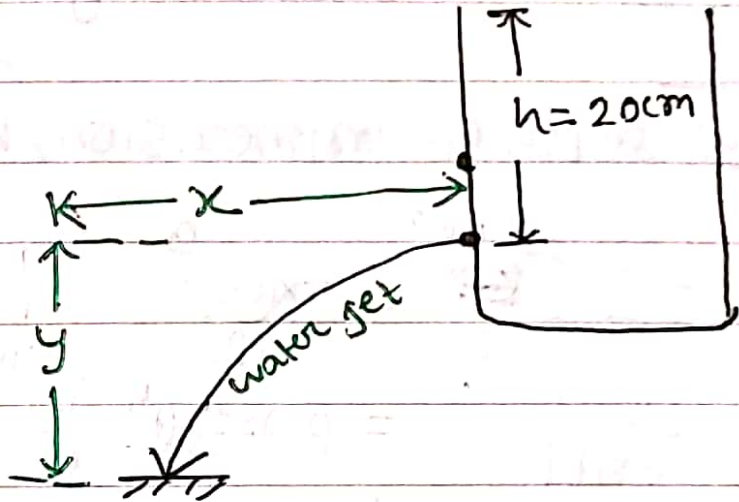 h=20cm
x
y
water jet